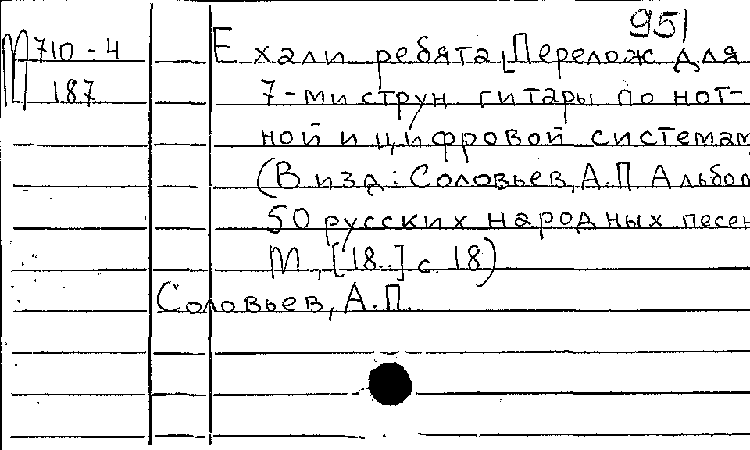 951
М 710-4
187
Ехали ребята [Перелож для
7-ми струн гитары по нот-
ной и цифровой системам
(В изд: Соловьев, А.П Альбом
50 русских народных песен
М., [18..] с 18)
Соловьев, А.П.